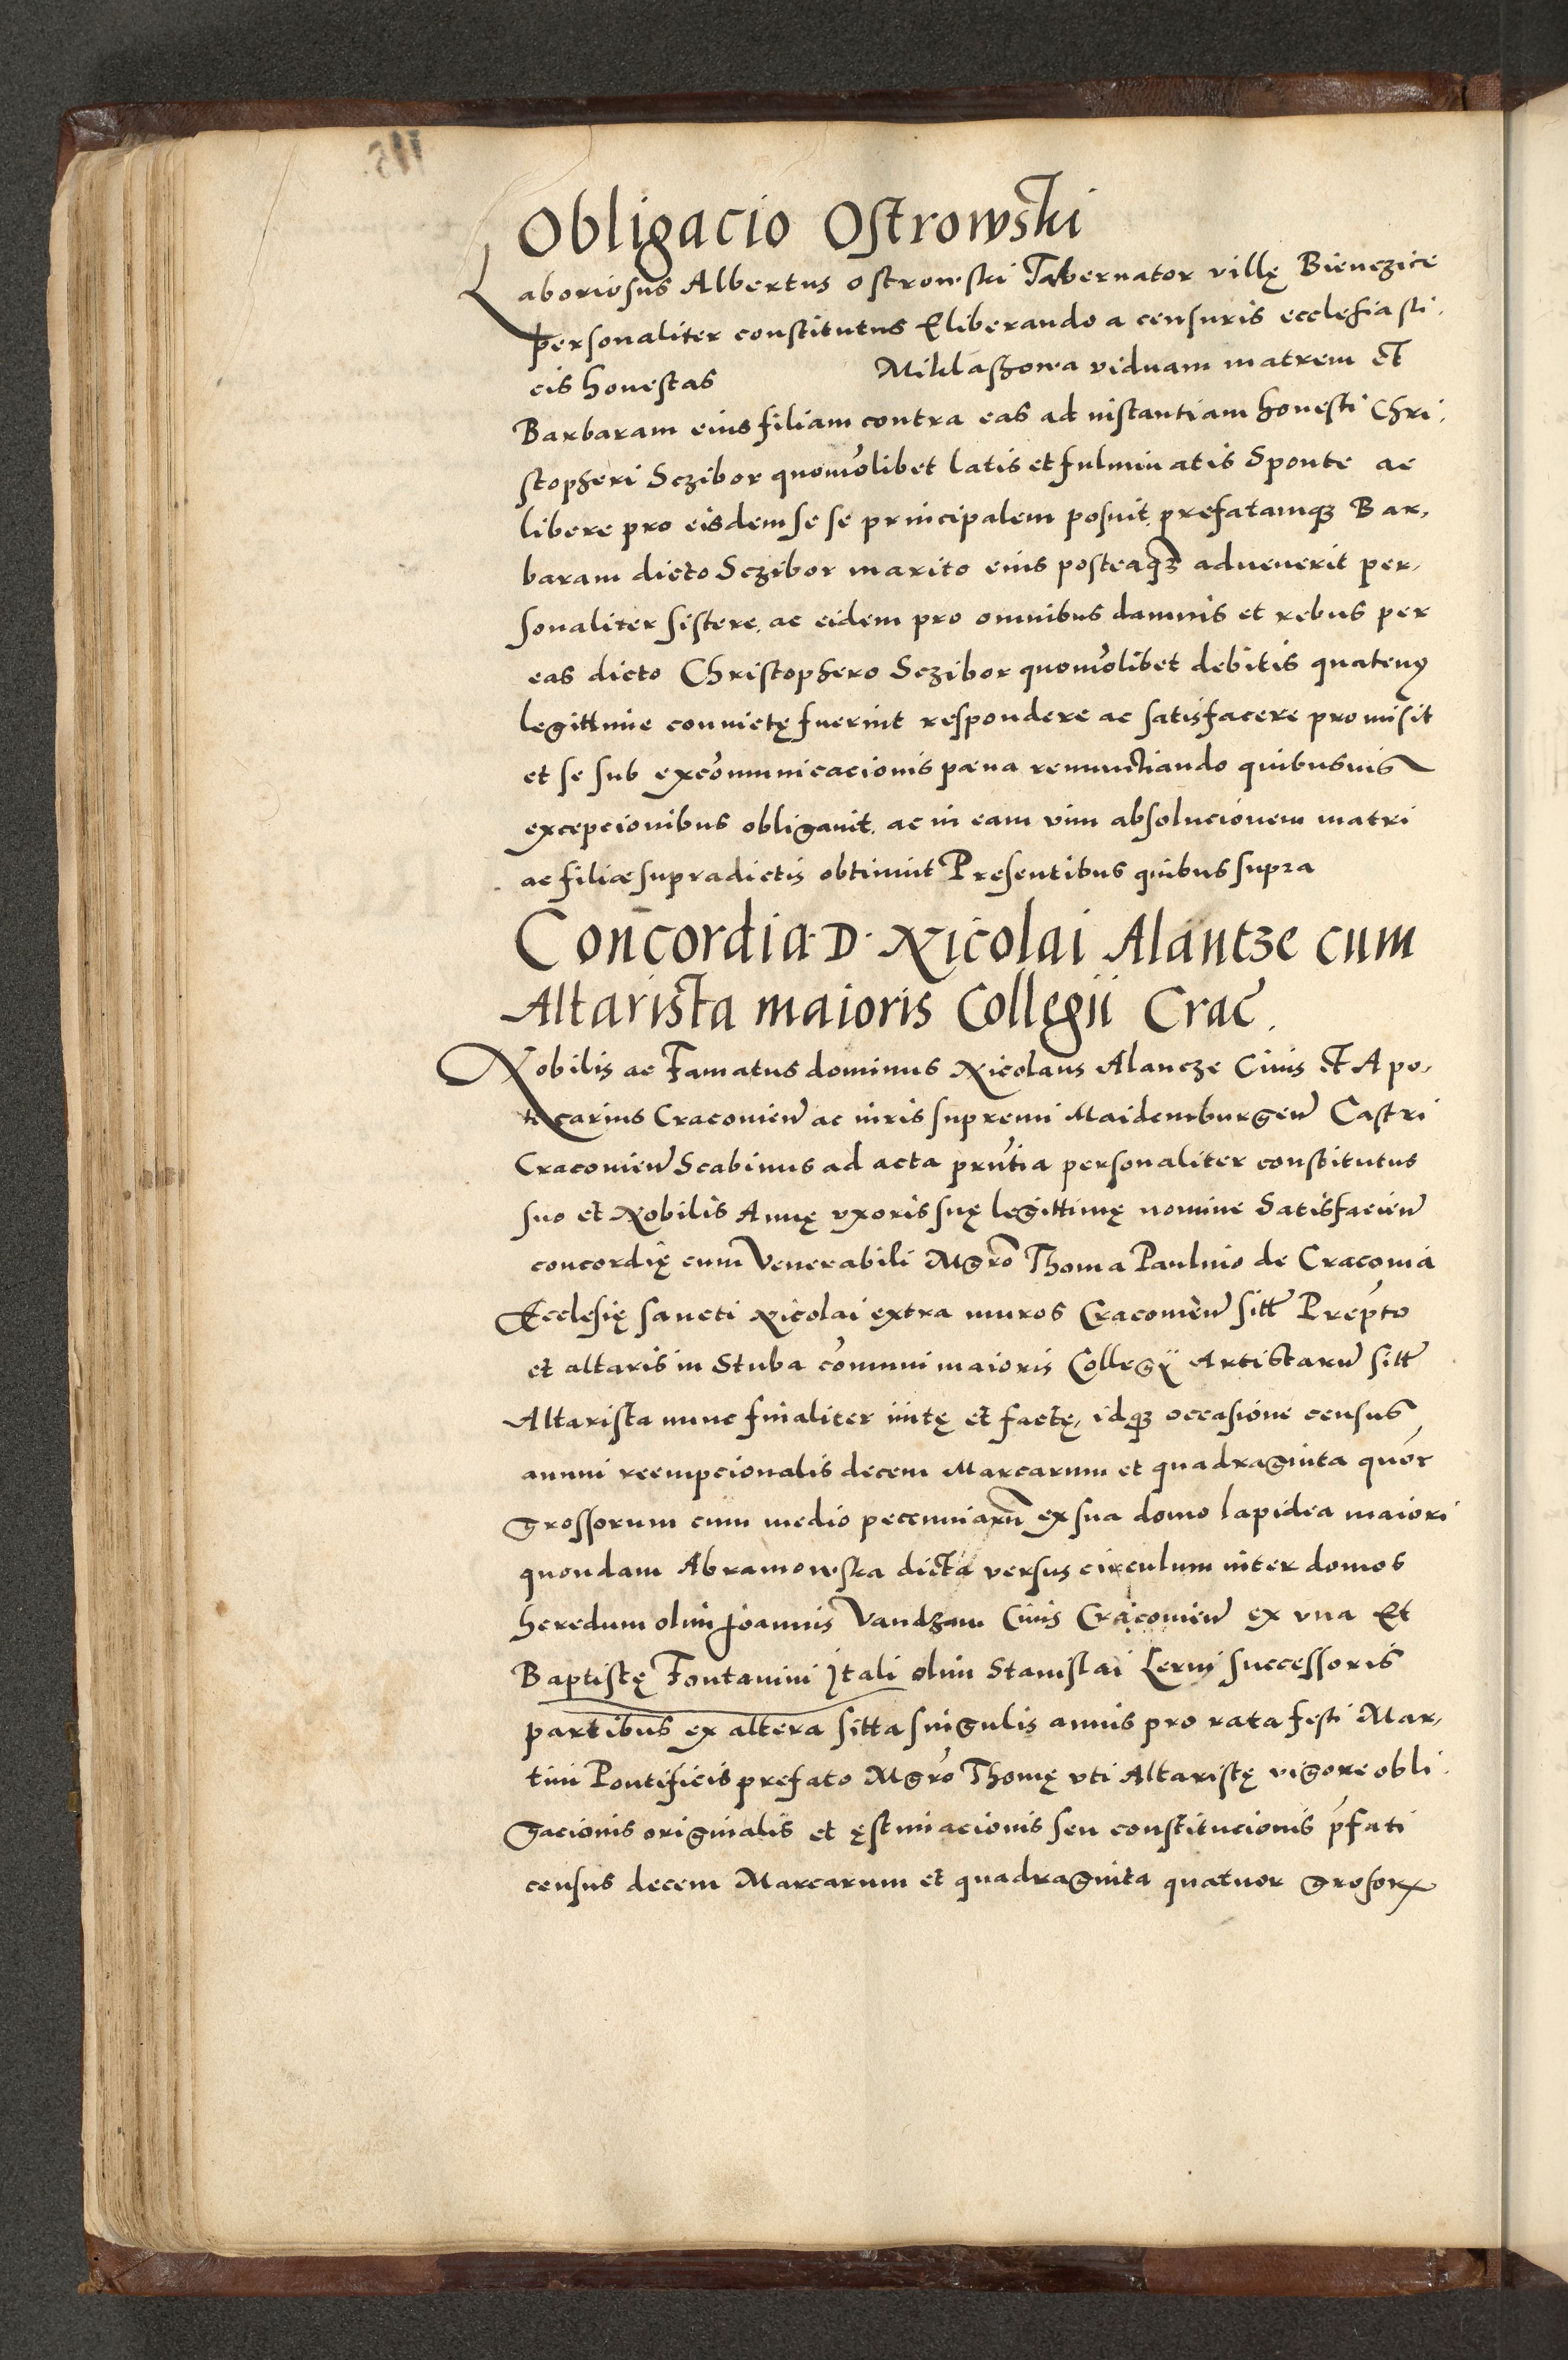 Obligacio Ostrowski
Laboriosus Albertus ostrowski Tabernator villę Bienczice
personaliter constitutus Eliberando a censuris ecclesiasti.
cis honestas Miklaszowa viduam matrem et
Barbaram eius filiam contra eas ad instantiam honesti Chri.
stopheri Sczibor quomo͂libet latis et fulminatis Sponte ac
libere pro eisdem se se principalem posuit, prefatamqꝫ Bar,
baram dicto Sczibor marito eius posteaqꝫ̃ advenerit per,
sonaliter sistere, ac eidem pro omnibus damnis et rebus per
eas dicto Christophero Sczibor quomo͂libet debitis quatenꝰ
legittime convictę fuerint respondere ac satisfacere promisit
et se sub exco͂municacionis pæna renunctiando quibusuis
excepcionibus obligauit, ac in eam vim absolucionem matri
ac filiæ supradictis obtinuit Presentibus quibus supra
Concordia D. Nicolai Alantze cum
Altarista maioris Collegii Crac̃.
Nobilis ac Famatus dominus Nicolaus Alancze Ciuis et Apo,
tecarius Cracovień ac iuris supremi Maidemburgeń Castri
Cracovień Scabinus ad acta pr͂ntia personaliter constitutus
suo et Nobilis Annę vxoris suę legittimę nomine Satisfacień
concordię cum Venerabili Mgr͂o Thoma Paulino de Cracovia
Ecclesię sancti Nicolai extra muros Cracovień sitt̃ Prep͂to
et altaris in Stuba co͂muni maioris Collegij Artistarũ sitt̃
Altarista nunc finaliter initę et factę, idqꝫ occasione census
annui reempcionalis decem Marcarum et quadraginta quor͂
grossorum cum medio pecunniarũ ex sua domo lapidea maiori
quondam Abramowska dicta versus circulum inter domos
heredum olim Joannis Vandzam Ciuis Cracovień ex vna Et
Baptistę Fontanini Itali olim Stanislai Lernj successoris
partibus ex altera sitta singulis annis pro rata festi Mar,
tini Pontificis prefato Mgr͂o Thomę vti Altaristę vigore obli.
gacionis originalis et ęstimacionis seu constitucionis p͂fati
census decem Marcarum et quadraginta quatuor grosorꝝ